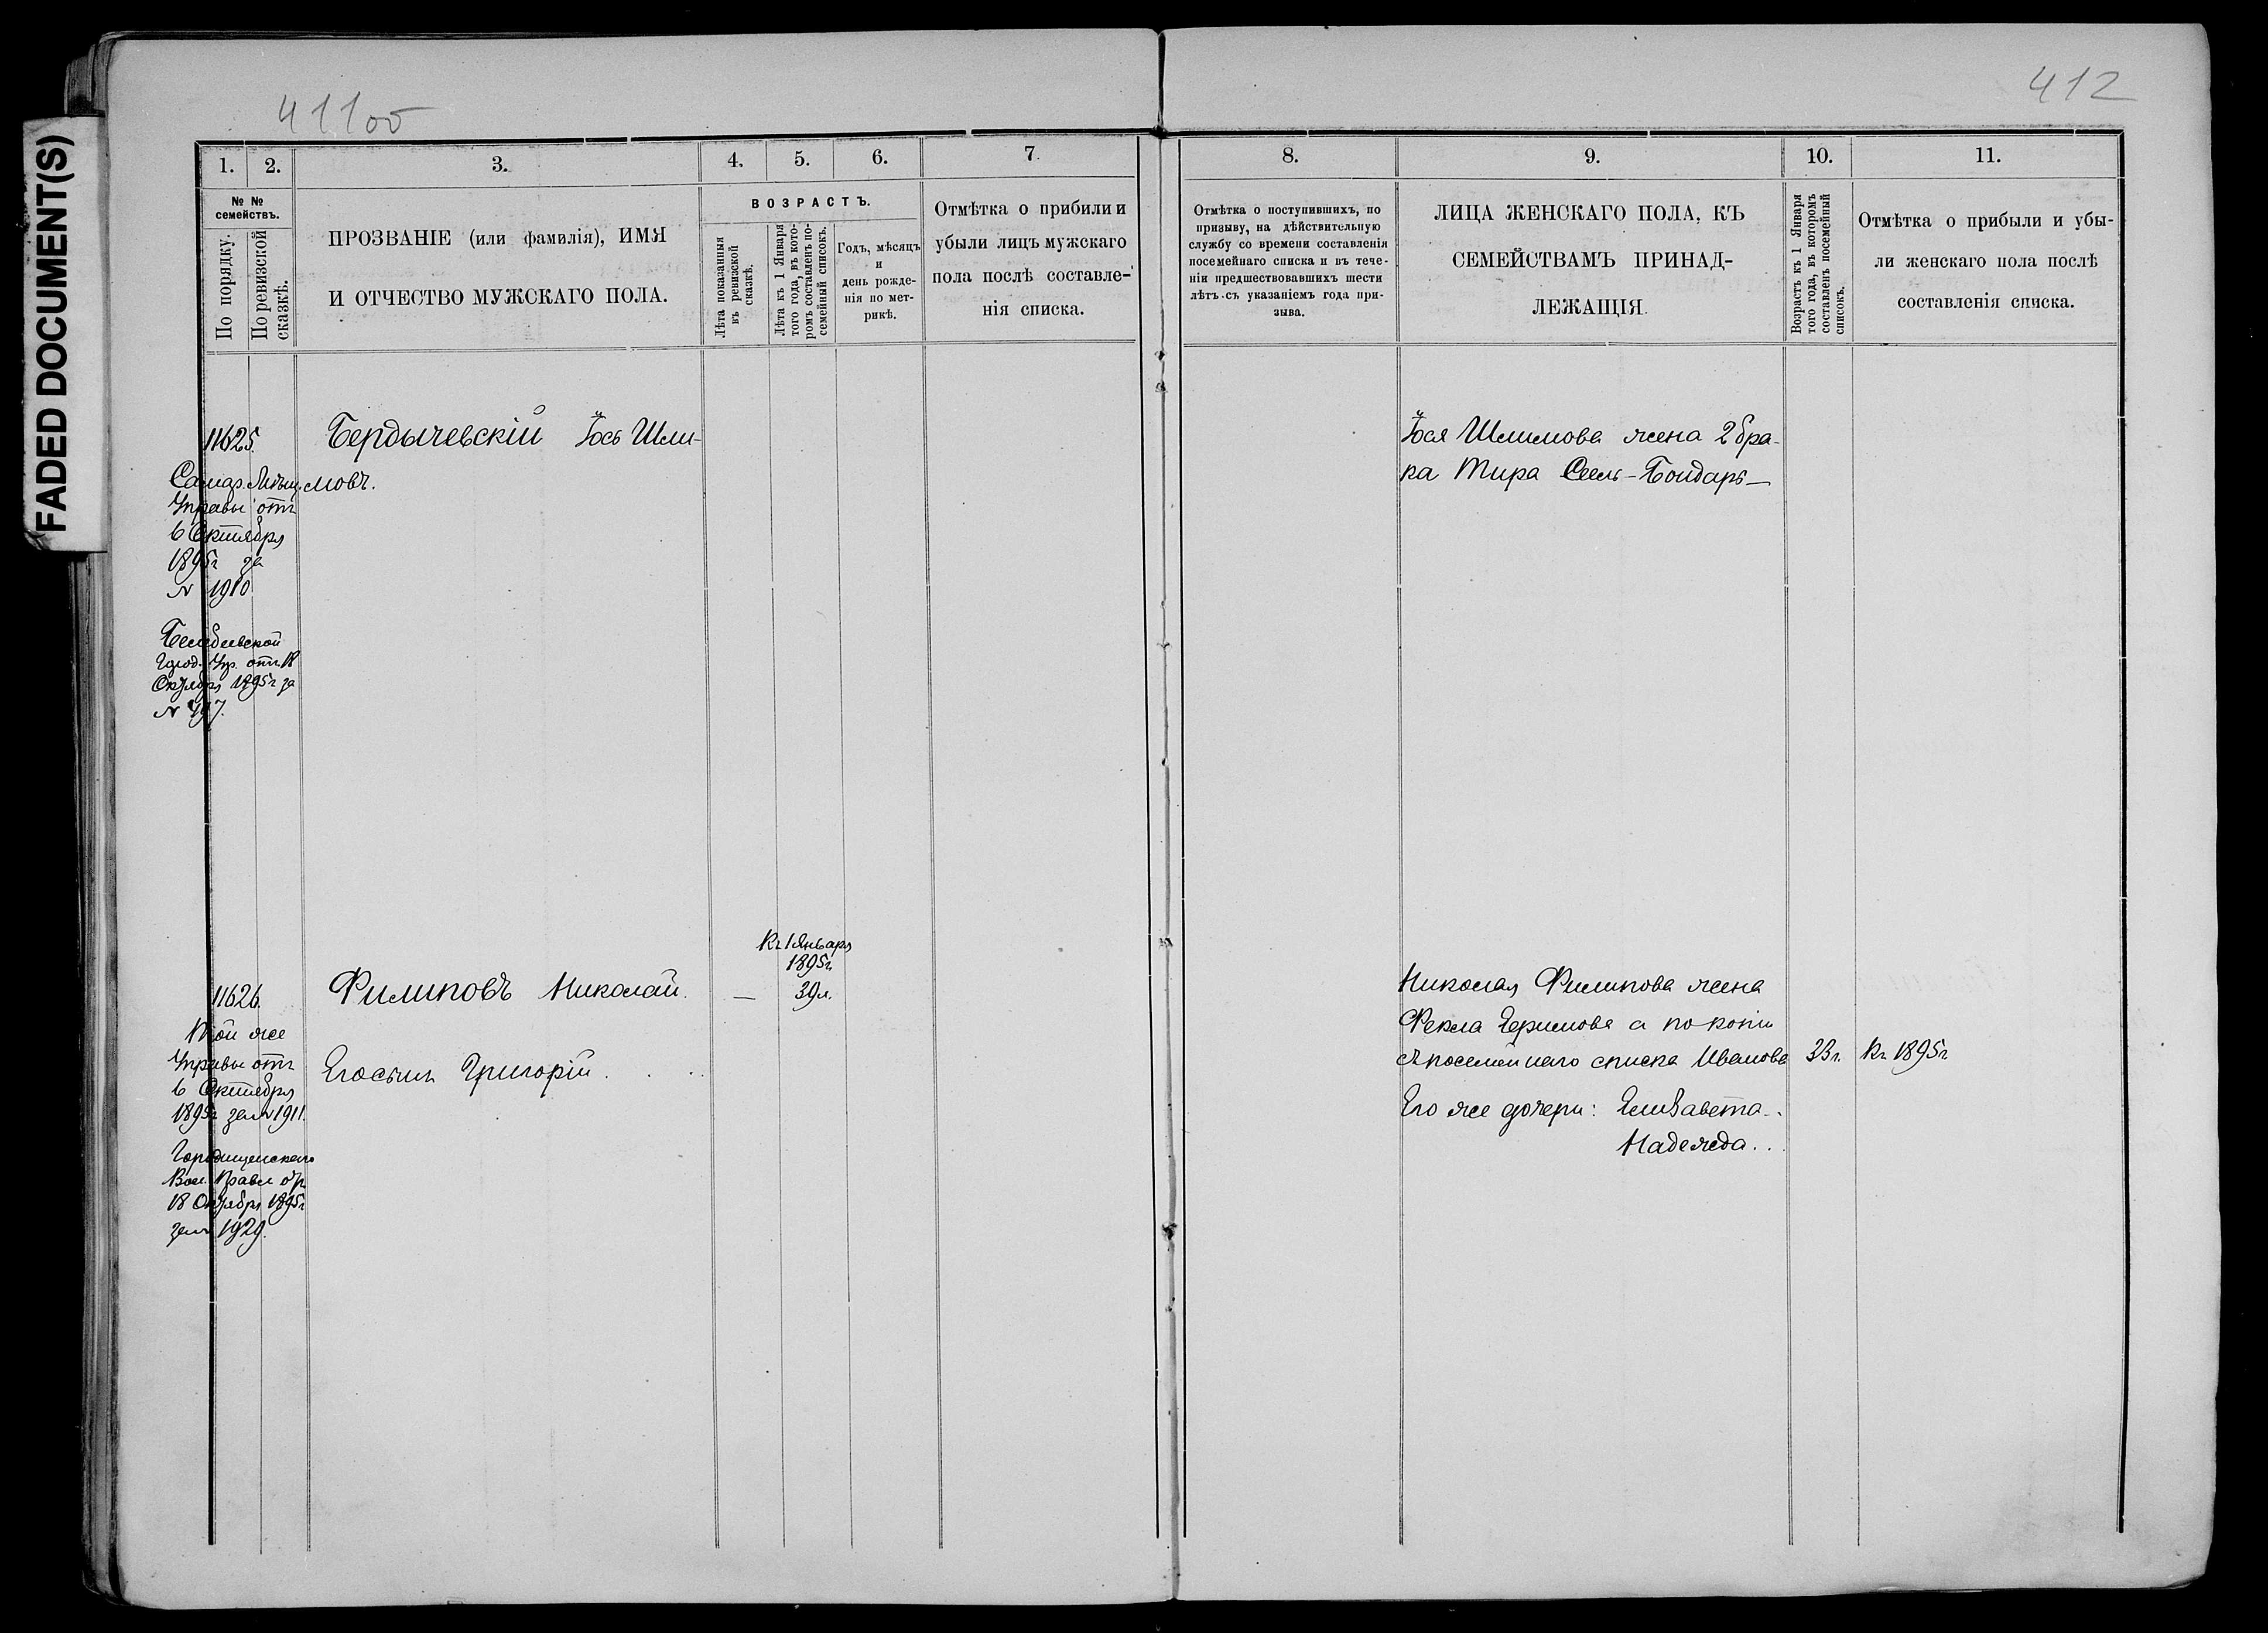 FADED DOCUMENT(S)
411об
412
1.
2.
3.
4.
5.
6.
7.
8.
9.
10.
11.
№ №
семействъ.
По порядку.
По ревизской
сказкѣ.
ПРОЗВАНІЕ (или фамилія), ИМЯ
И ОТЧЕСТВО МУЖСКАГО ПОЛА.
ВОЗРАСТЪ.
Лѣта показанныя
въ ревизской
сказкѣ.
Лѣта къ 1 Января
того года, въ кото-
ромъ составленъ по-
семейный списокъ.
Годъ, мѣсяцъ
и
день рожде-
нія по мет-
рикѣ.
Отмѣтка о прибыли и
убыли лицъ мужскаго
пола послѣ составле-
нія списка.
Отмѣтка о поступившихъ, по
призыву, на дѣйствительную
службу со времени составленія
посемейнаго списка и въ тече-
ніи предшествовавшихъ шести
лѣтъ съ указаніемъ года при-
зыва.
ЛИЦА ЖЕНСКАГО ПОЛА, КЪ
СЕМЕЙСТВАМЪ ПРИНАД-
ЛЕЖАЩІЯ.
Возрастъ къ 1 Января
того года, въ которомъ
составленъ посемейный
списокъ.
Отмѣтка о прибыли и убы-
ли женскаго пола послѣ
составленія списка.
11625.
Бердычевскій Іось Шли-
мовъ.
Самар. Мѣщ.
Управы отъ
6 Октября
1895г за
№ 1910
Белебеевской
Город. Упр. отъ 18
Октября 1895г за
№ 497.
Іося Шлимова жена 2 бра-
ка Мира Сель-Бондарь—
Къ 1 Января
1895г.
11626.
Филиповъ Николай.
— 39л.
Той же
Управы отъ
6 Октября
1895г за № 1911.
Городищенскаго
Вол. Правл от
18 Октября 1895г
за № 1929.
Его сынъ Григорій . . . .
Николая Филипова жена
Фекла Ефимова а по копіи
посемейнаго списка Иванова
33г.
Къ 1895г
Его же дочери: Елизавета..
Надежда...